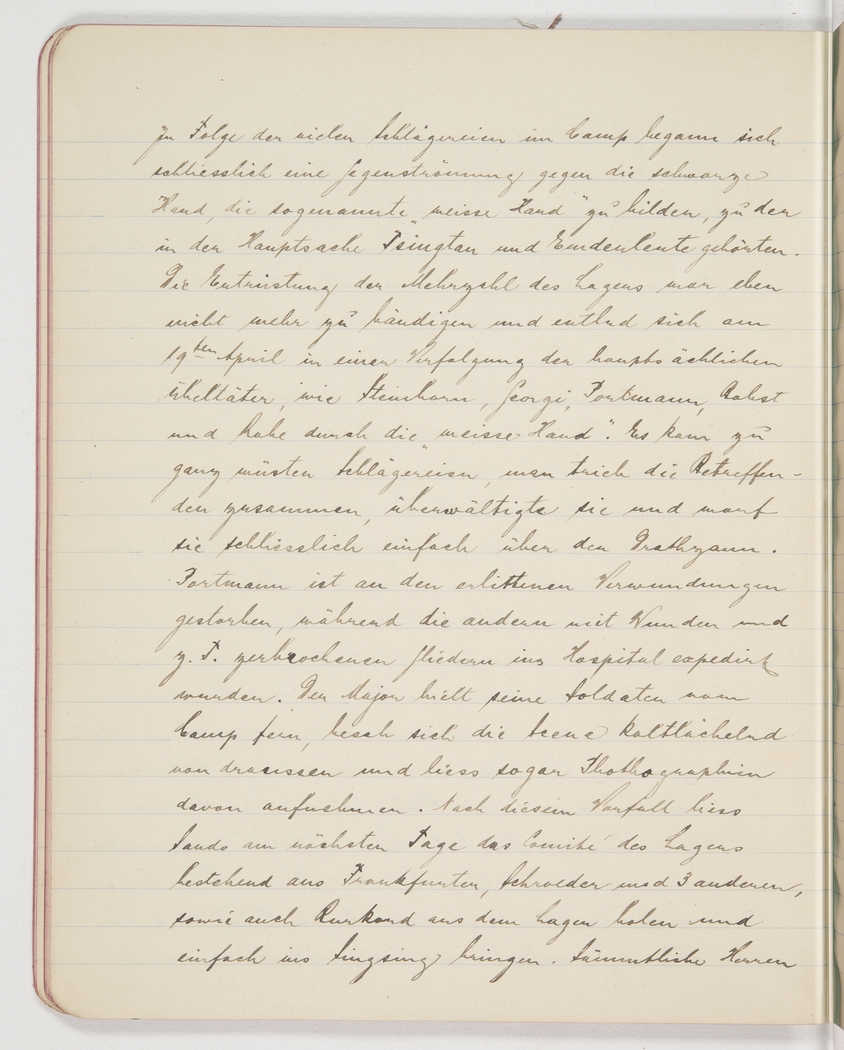 In Folge der vielen Schlägereien im Camp begann sich
schliesslich eine Gegenströmung gegen die schwarze
Hand, die sogenannte „weisse Hand" zu bilden, zu der
in der Hauptsache Tsingtau und Emdenleute gehörten.
Die Entrüstung der Mehrzahl des Lagers war eben
nicht mehr zu bändigen und entlud sich am
19ten April in einer Verfolgung der hauptsächlichen
Übeltäter, wie Steinhorn, Georgi, Portmann, Pabst
und Kahe durch die „weisse Hand". Es kam zu
ganz wüsten Schlägereien, man trieb die Betreffen-
den zusammen, überwältigte sie und warf
sie schliesslich einfach über den Drathzaun.
Portmann ist an den erlittenen Verwundungen
gestorben, während die andern mit Wunden und
z. T. zerbrochenen Gliedern ins Hospital expedirt
wurden. Der Major hielt seine Soldaten vom
Camp fern, besah sich die Scene kaltlächelnd
von draussen und liess sogar Phothographien
davon aufnehmen. Nach diesem Vorfall liess
Sands am nächsten Tage das Comité des Lagers
bestehend aus Frankfurter, Schroeder und 3 anderen,
sowie auch aus dem Lager holen und
einfach ins Singsing bringen. Sämmtliche Herren